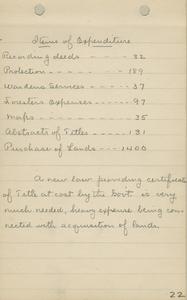 Items of Expenditure
Recording deeds - - - - 32
Protection - - - - 189
Wardens Services - - - 37
Foresters Expenses - - - 97
Maps - - - - 35
Abstracts of Titles - - - 131
Purchase of Lands - - - 1400
A new law providing certificate
of Title at cost by the Govt. is very
much needed, heavy expense being con-
nected with acquisition of lands.
22